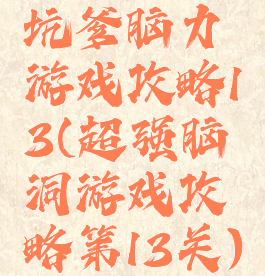 坑爹脑力
游戏攻略1
3(超强脑
洞游戏攻
略第13关)